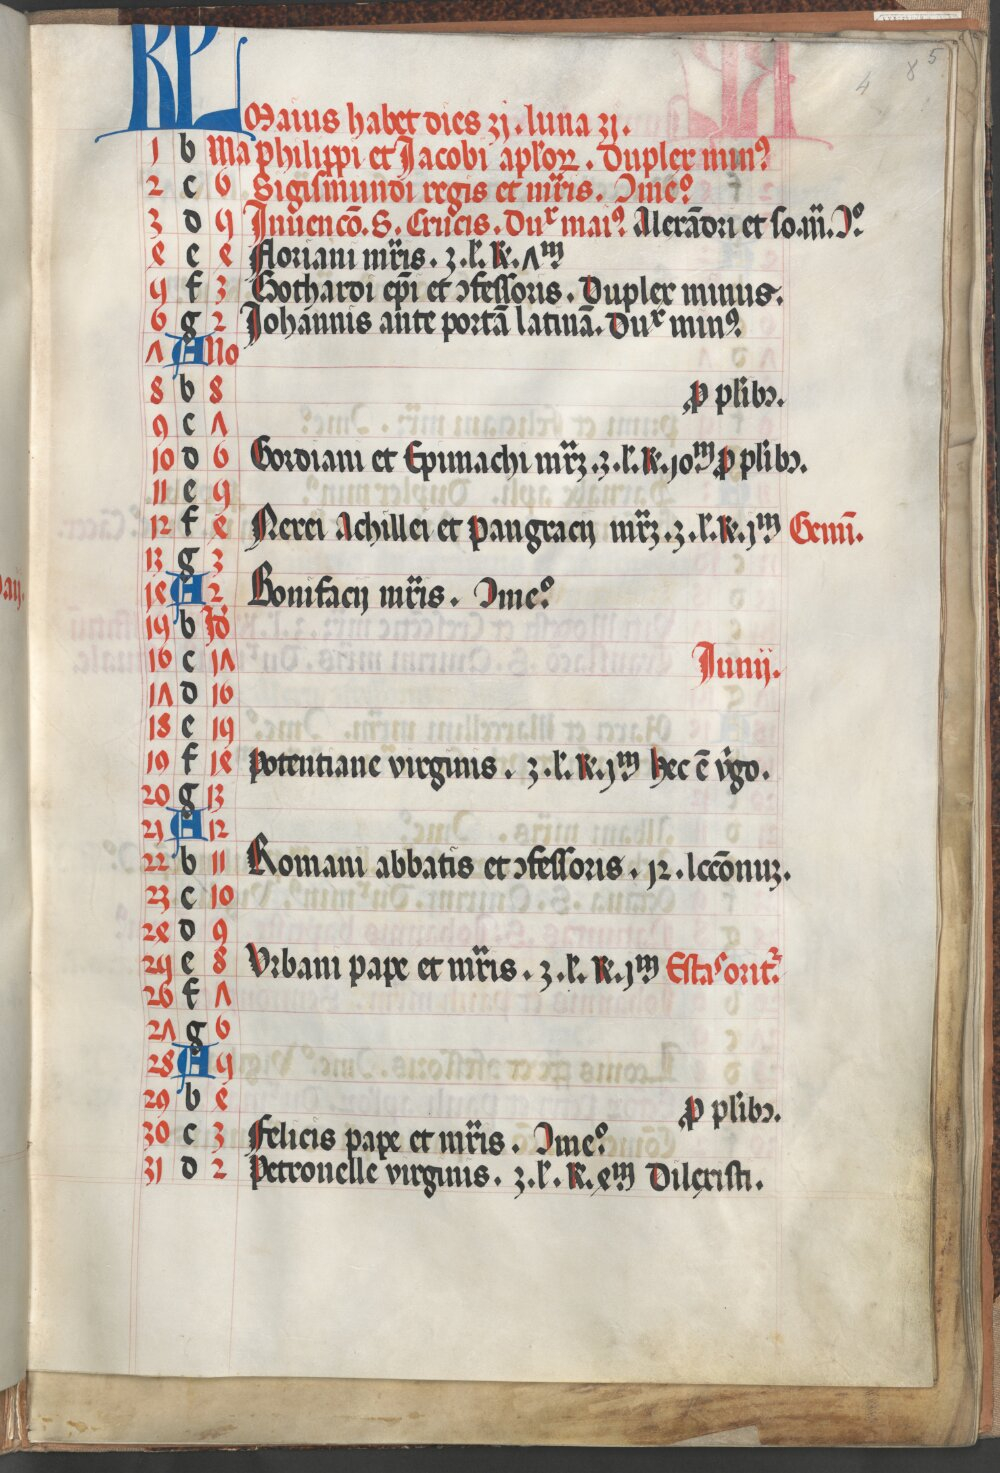 4 8 5
KL Maius habet dies 31. luna 31.
1 b Ma philippi et Jacobi aplor. Duplex min9
2 c 6 Sigismundi regis et mris. Ime9
3 d 5 Inuencō. S. Crucis. Dux mai9 Alexādri et so. m. I9
4 e 4 Floriani mris. 3. l. R. 7m
5 f 3 Gothardi epi et ɔfessoris. Duplex minus.
6 g 2 Johannis ante portā latinā. Dux min9
7 A No
8 b 8 p plibɔ.
9 c 7
10 d 6 Gordiani et Epimachi mrʒ. 3. l. R. 10m p plibɔ.
11 e 5
12 f 4 Nerei Achillei et pangracij mrʒ. 3. l. R. 1m Gemī.
13 g 3
14 A 2 Bonifacij mris. Ime9
15 b Id
16 c 17 Junij.
17 d 16
18 e 15
19 f 14 Potentiane virginis. 3. l. R. 1m hec ē vgo.
20 g 13
21 A 12
22 b 11 Romani abbatis et ɔfessoris. 12. lccōnuʒ.
23 c 10
24 d 9
25 e 8 Vrbani pape et mris. 3. l. R. 1m Estas orit
26 f 7
27 g 6
28 A 5
29 b 4 p plibɔ.
30 c 3 Felicis pape et mris. Ime9
31 d 2 Petronelle virginis. 3. l. R. 4m Dilexisti.